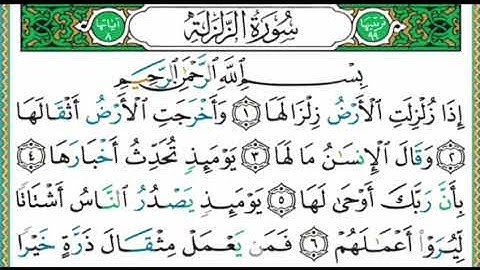 ترتيبها ٩٩ سُورَةُ الزَّلْزَلَةِ آياتها ٨
بِسْمِ اللَّهِ الرَّحْمَٰنِ الرَّحِيمِ
إِذَا زُلْزِلَتِ الْأَرْضُ زِلْزَالَهَا ۝١ وَأَخْرَجَتِ الْأَرْضُ أَثْقَالَهَا
۝٢ وَقَالَ الْإِنسَٰنُ مَا لَهَا ۝٣ يَوْمَئِذٍ تُحَدِّثُ أَخْبَارَهَا ۝٤
بِأَنَّ رَبَّكَ أَوْحَىٰ لَهَا ۝٥ يَوْمَئِذٍ يَصْدُرُ النَّاسُ أَشْتَاتًا
لِّيُرَوْا أَعْمَٰلَهُمْ ۝٦ فَمَن يَعْمَلْ مِثْقَالَ ذَرَّةٍ خَيْرًا